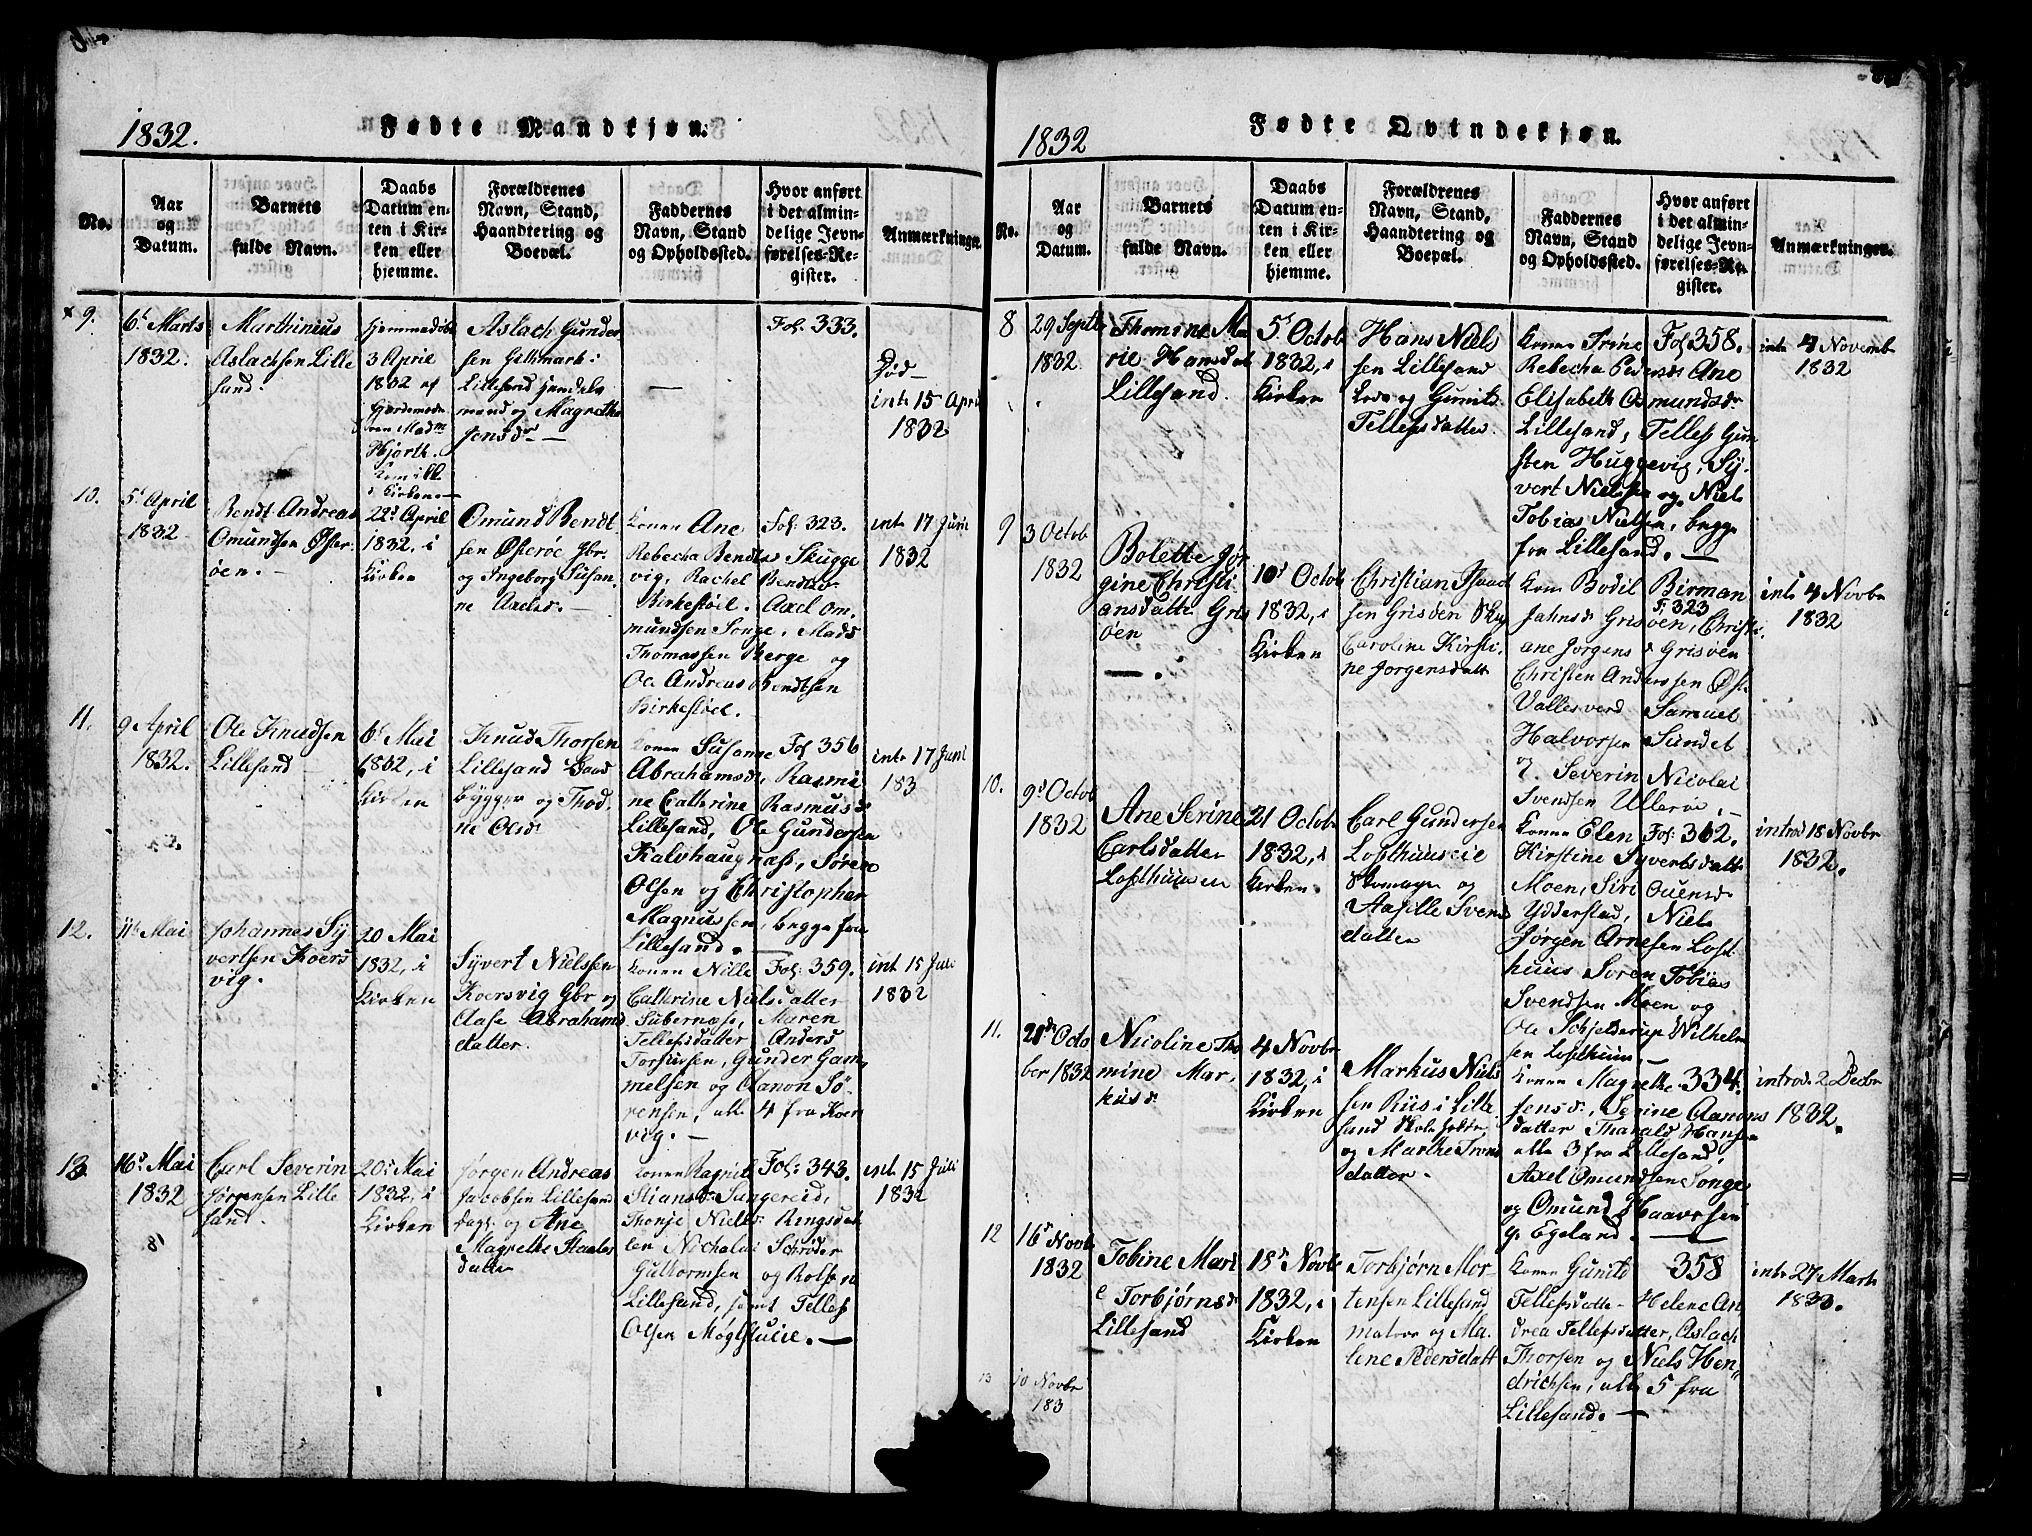 1832.
Fødte Mandkjøn.
No.
Aar og Datum.
Barnets fulde Navn.
Daabs Datum enten i Kirken eller hjemme.
Forældrenes Navn, Stand, Haandtering og Boepæl.
Faddernes Navn, Stand og Opholdssted.
Hvor anført i det almindelige Jevnførelses-Register.
Anmærkninger.
9.
6t Marts
1832.
Marthinius
Aslachsen Lille
sand.
Hjemmedøbt
3 April
1832 af
Gjordemode
ren Mad
Hjorth.
i Kirken.
Aslach Gunder
sen Githmark i
Lillesand Handels
mand og Magrethe
Jensdr
Fol. 333.
Død
int 15 April
1832
10.
5t April
1832
Bendt Andreas
Omundsen Øster
øen.
22d April
1832, i
Kirken
Omund Bendt
sen Østerøe Gbr.
og Ingeborg Susan
ne Axelsd.
Konen Ane
Rebecha Bendtsd Skugge
vig, Rachel Bendtsd
Birkestøel. Axel Om
mundsen Songe, Mads
Thomassen Berge og
Ole Andreas Bendtsen
Birkestøel.
Fol. 323.
int 17 Juni
1832
11.
9 April
1832.
Ole Knudsen
Lillesand
6t Mai
1832, i
Kirken
Knud Thorsen
Lillesand Baad
bygger og Thod
ne Olsdr
Konen Susanne
Abrahamsdr, Rasmi
ne Cathrine Rasmusd
Lillesand, Ole Gundersen
Kalvhaugnæss, Søren
Olsen og Christopher
Magnussen, begge fra
Lillesand.
Fol 356
int 17 Juni
183
12.
11t Mai
Johannes Sy
vertsen Koers
vig.
20 Mai
1832, i
Kirken
Syvert Nielssen
Koersvig Gbr og
Aase Abrahams
datter.
Konen Nille
Cathrine Nielsdatter
Tellefsdatter Anders
Gunder Gam
melsen og Aanon Sö
rensen, alle 4 fra Koers
vig.
Fol: 359.
int 15 Juli
1832
13
16d Mai
1832
Carl Severin
Jørgensen Lille
sand.
20d Mai
1832, i
Kirken
Jørgen Andreas
Jacobsen Lillesand
og Ane
Magrethe Staales
datter
Konen Ragnil
Stiansdr Sangereid,
Thonje Nielsd. Ringsdal
len Nicholai Schrøder
Guthormsen og Rolf
Lillesand, samt Tellef
Olsen Møglestueie.
Fol: 343.
int 15 Juli
1832
1832
Fødte Qvindekjøn.
No.
Aar og Datum.
Barnets fulde Navn.
Daabs Datum enten i Kirken eller hjemme.
Forældrenes Navn, Stand, Haandtering og Boepæl.
Faddernes Navn, Stand og Opholdssted.
Hvor anført i det almindelige Jevnførelses-Register.
Anmærkninger.
8
29 Septbr
1832
Thomine Ma
rie Hansdat
Lillesand.
5t Octob
1832, i
Kirken
Hans Niels
sen Lillesand
Lods og Gunild
Tellefsdatter.
Konen Trine
Rebecha Pedersd Ane
Elisabeth Osmundsdr
Lillesand, Tellef Gun
sten Huggevig, Sy
vert Nielsen og Niels
Tobias Nielsen, begge
fra Lillesand.
Fol 358.
int 4 Novemb
1832
9
3 Octob
1832
Bolette Jør
gine Christi
ansdatte Gris
øen
10d Octob
1832, i
Kirken
Christian Isaac
sen Grisøen
Caroline Kirsti
ne Jørgensdatt
Kon Bodil Birman
Jahnsd Grisøen, Christi
ane Jørgensd Grisøen
Christen Anderssen Øst
Vallesverd Samuel
Halvorsen Sundet
og Severin Nicolai
Svendsen Ulleröe
F. 323
int 4 Novbr
1832
10.
9d Octob
1832
Ane Serine
Carlsdatter
Lofthuusen
21 Octob
1832, i
Kirken
Carl Gundersen
Lofthuuseie
Skomager og
Aasille Svends
datter
Konen Elen
Kirstine Syvertsdatt
Moen, Siri Ouensd
Ydderstad, Niels
Jørgen Arnesen Loft
huus Soren Tobias
Svendsen Moen og
Ole Schjelderup Wilhelm
sen Lofthuus
Fol: 362.
introd 18 Novbr
1832.
11.
21d Octo
ber 1832
Nicoline Tho
mine Mar
kusd
4 Novbr
1832, i
Kirken
Markus Niels
sen Riis i Lille
sand Skoleholder
og Marthe Trons
datter
Konen Magrethe
Jensd, Serine Aanons
datter Tharald Hansen
alle 3 fra Lillesand,
Axel Omundsen Songe
og Omund Haavorsen
g. Egeland.
334.
introd 2 Decbr
1832.
12
16d Novbr
1832
Tobine Mari
e Torbjørnsd
Lillesand
18d Novbr
1832, i
Kirken
Torbjørn Mor
tensen Lillesand
matros og Ma
lene Pedersdatt
Konen Gunild
Tellefsdatte Helene An
drea Tellefsdatter, Aslach
Thorsen og Niels Hen
drichsen, alle 5 fra
Lillesand.
358
int 27 Marts
1833.
13
10 Novbr
183